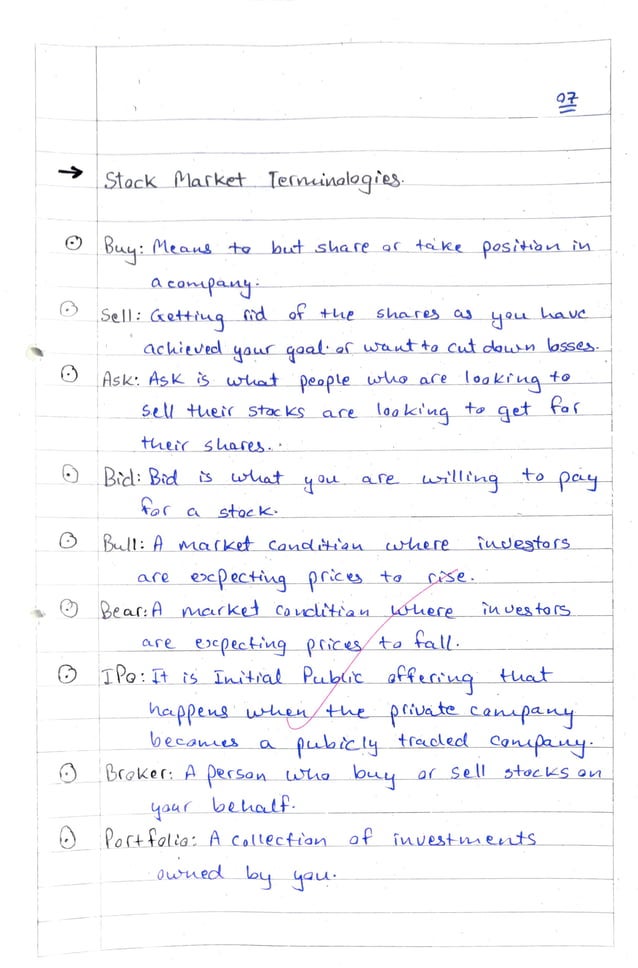 07
→ Stock Market Terminologies.
⊙ Buy: Means to but share or take position in
a company.
⊙ Sell: Getting rid of the shares as you have
achieved your goal or want to cut down losses.
⊙ Ask: Ask is what people who are looking to
sell their stocks are looking to get for
their shares..
⊙ Bid: Bid is what you are willing to pay
for a stock.
⊙ Bull: A market condition where investors
are expecting prices to rise.
⊙ Bear: A market condition where investors
are expecting prices to fall.
⊙ IPO: It is Initial Public offering that
happens when the private company
becomes a pubicly traded company.
⊙ Broker: A person who buy or sell stocks on
your behalf.
⊙ Portfolio: A collection of investments
owned by you.